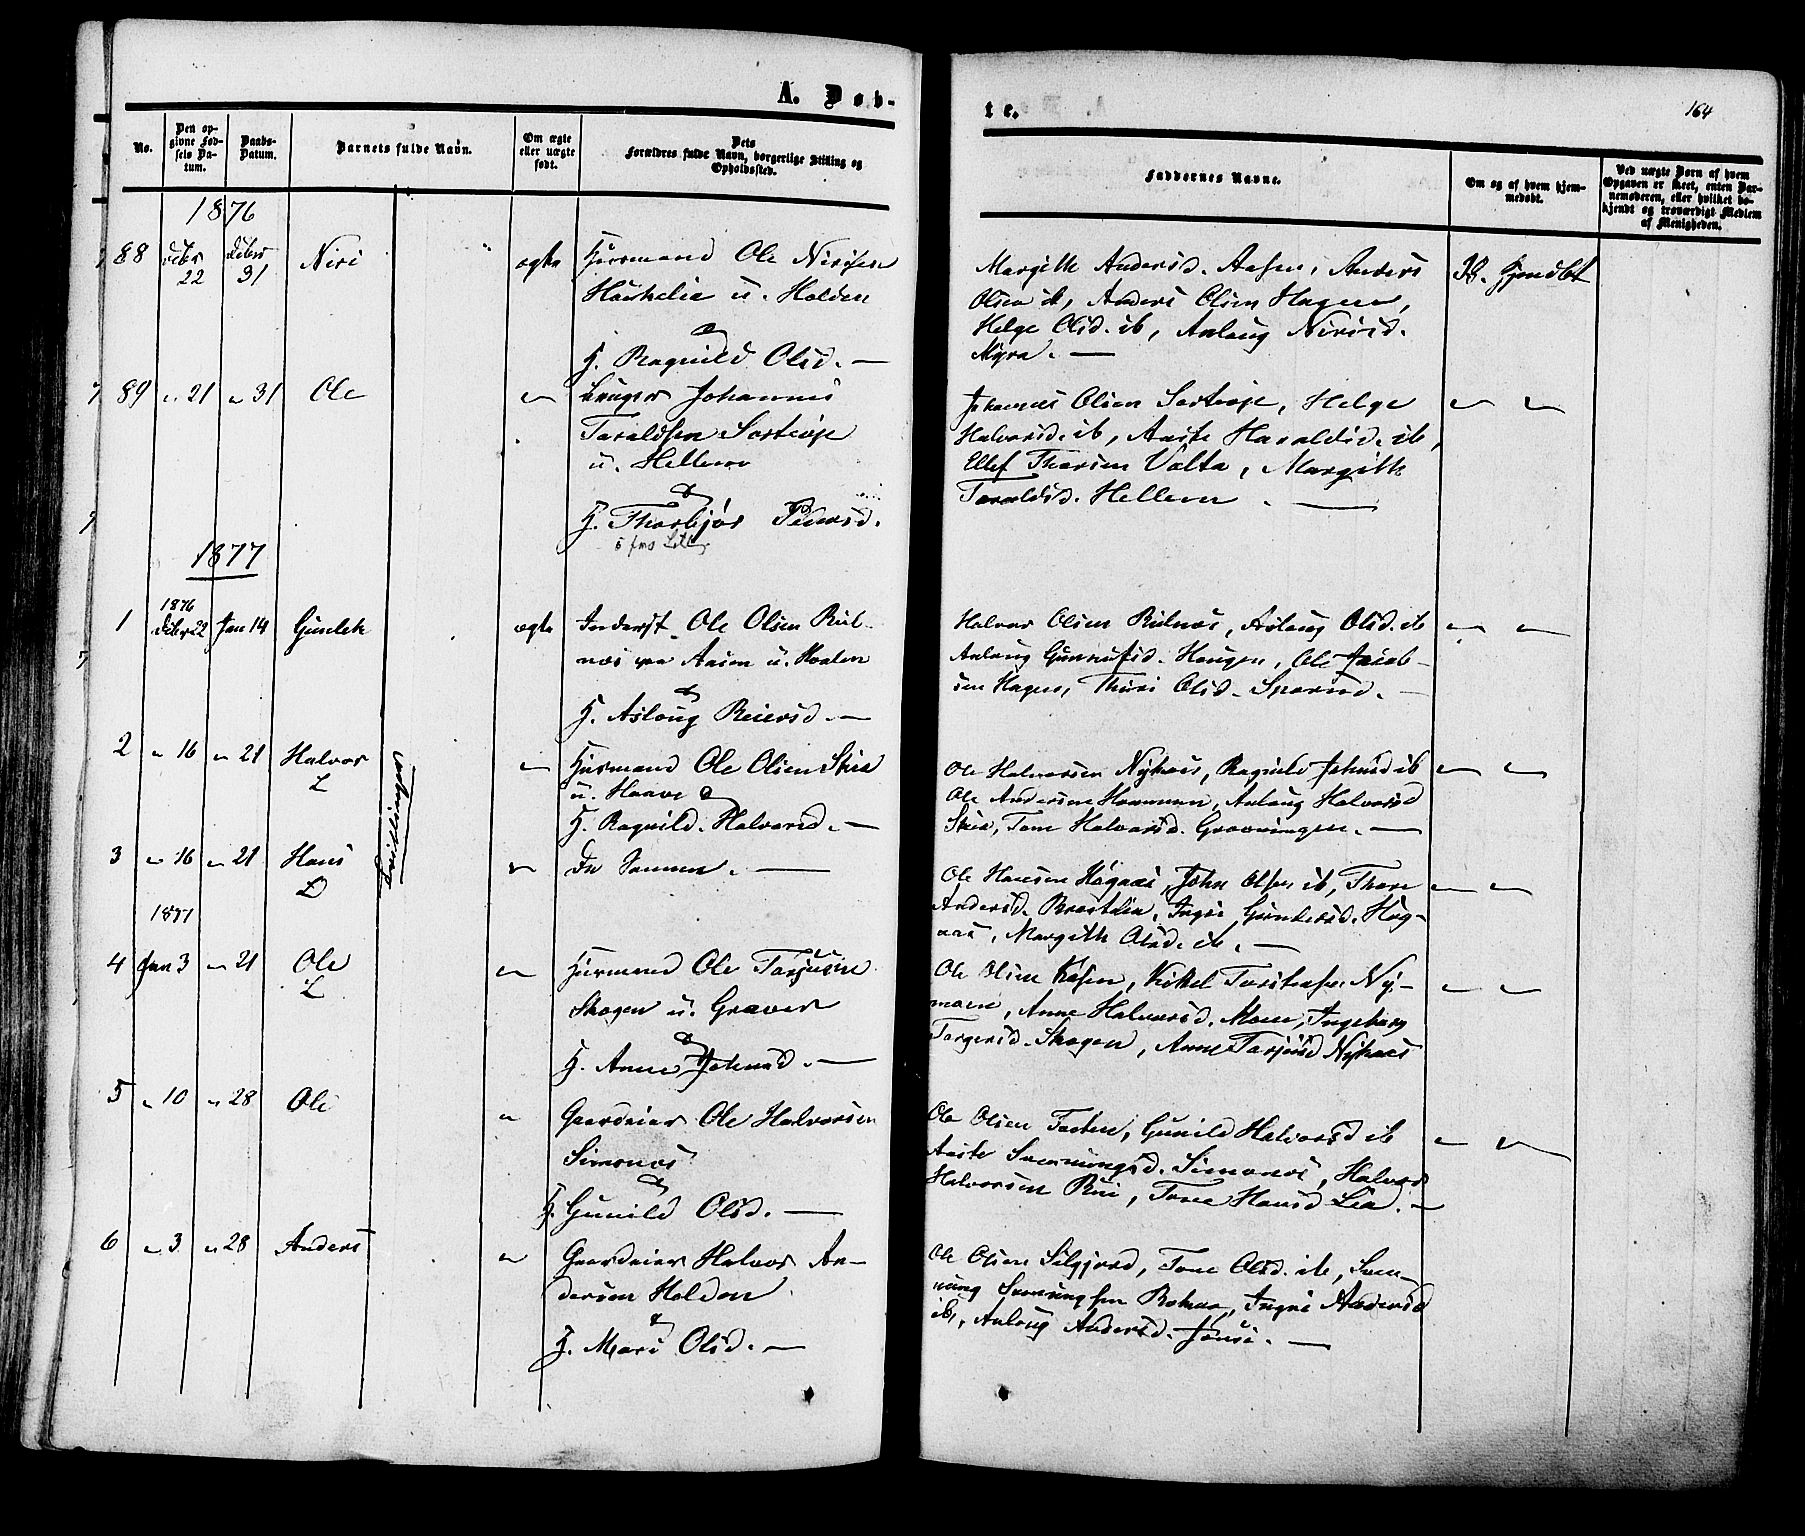 A. Døb-
te.
164
No.
Den opgivne Fødsels Datum.
Daabs-Datum.
Barnets fulde Navn.
Om ægte eller uægte født.
Dets Forældres fulde Navn, borgerlige Stilling og Opholdssted.
Faddernes Navne.
Om og af hvem hjemmedøbt.
Ved uægte Børn af hvem Opgaven er skeet, enten Barnemoderen, eller hvilket bekjendt og troværdigt Medlem af Menigheden.
1876
88 Dcbr 22 Dcbr 31 Niri ægte Huusmand Ole Nirisen
u. Holden
H. Ragnild Olsd. —
Margith Andersd. Aasen, Anders
Olsen ib, Anders Olsen Hagen,
Helge Olsd. ib, Aslaug Nirisd.
Myra. —
Ik. Hjemdbt
89 " 21 " 31 Ole " Johannes
Taraldsen
u. Hellem
H. Thorbjør Pedersd.
Johannes Olsen, Helge
Halvorsd. ib, Aaste Haraldsd. ib,
Ellef Thorsen Valta, Margith
Taraldsd. Hellem. —
1877
1 1876 Dcbr 22 Jan 14 Gunlek ægte Inderst Ole Olsen
næs paa Aasen u. Hvalen
H. Aslaug Reiersd. —
Halvor Olsen, Aslaug Olsd. ib
Aslaug Gunnufsd. Haugen, Ole Jacob-
sen Hagen, Thuri Olsd. —
2 " 16 " 21 Halvor " Husmand Ole Olsen Skia
u. Haave
H. Ragnild Halvorsd. —
Ole Halvorsen Nyhuus, Ragnild Johnsd ib
Ole Andersen, Aslaug Halvorsd
Skia, Tone Halvorsd. Grovningen. —
3 " 16 " 21 Hans " De Samme. —
Ole Hansen Høgnæs, John Olsen ib, Thore
Andersd., Ingri Gundersd. Høg-
næs, Margith Olsd. ib. —
1877
4 Jan 3 " 21 Ole " Husmand Ole Tarjusen
Skogen u. Graver
H. Anne Johnsd. —
Ole Olsen, Kittel Torstensen Ny-
moen, Anne Halvorsd. Moen, Ingeborg
Targersd. Skogen, Anne Tarjusd Nyhuus
5 " 10 " 28 Ole " Gaardeier Ole Halvorsen
Simonæs
H. Gunild Olsd. —
Ole Olsen, Gunild Halvorsd ib
Aaste Svennungsd. Simonæs, Halvor
Halvorsen Rui, Tone Hansd Lia. —
6 " 3 " 28 Anders " Gaardeier Halvor An-
dersen Holdan
H. Mari Olsd. —
Ole Olsen Seljord, Tone Olsd. ib, Sven-
nung Svennungsen, Ingri Andersd
ib, Aslaug Andersd. —